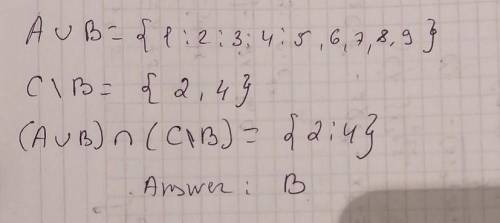 A ∪ B = { 1 ; 2 ; 3 ; 4 ; 5 , 6 , 7 , 8 , 9 }
C \ B = { 2 , 4 }
(A ∪ B) ∩ (C \ B) = { 2 ; 4 }
Answer : B